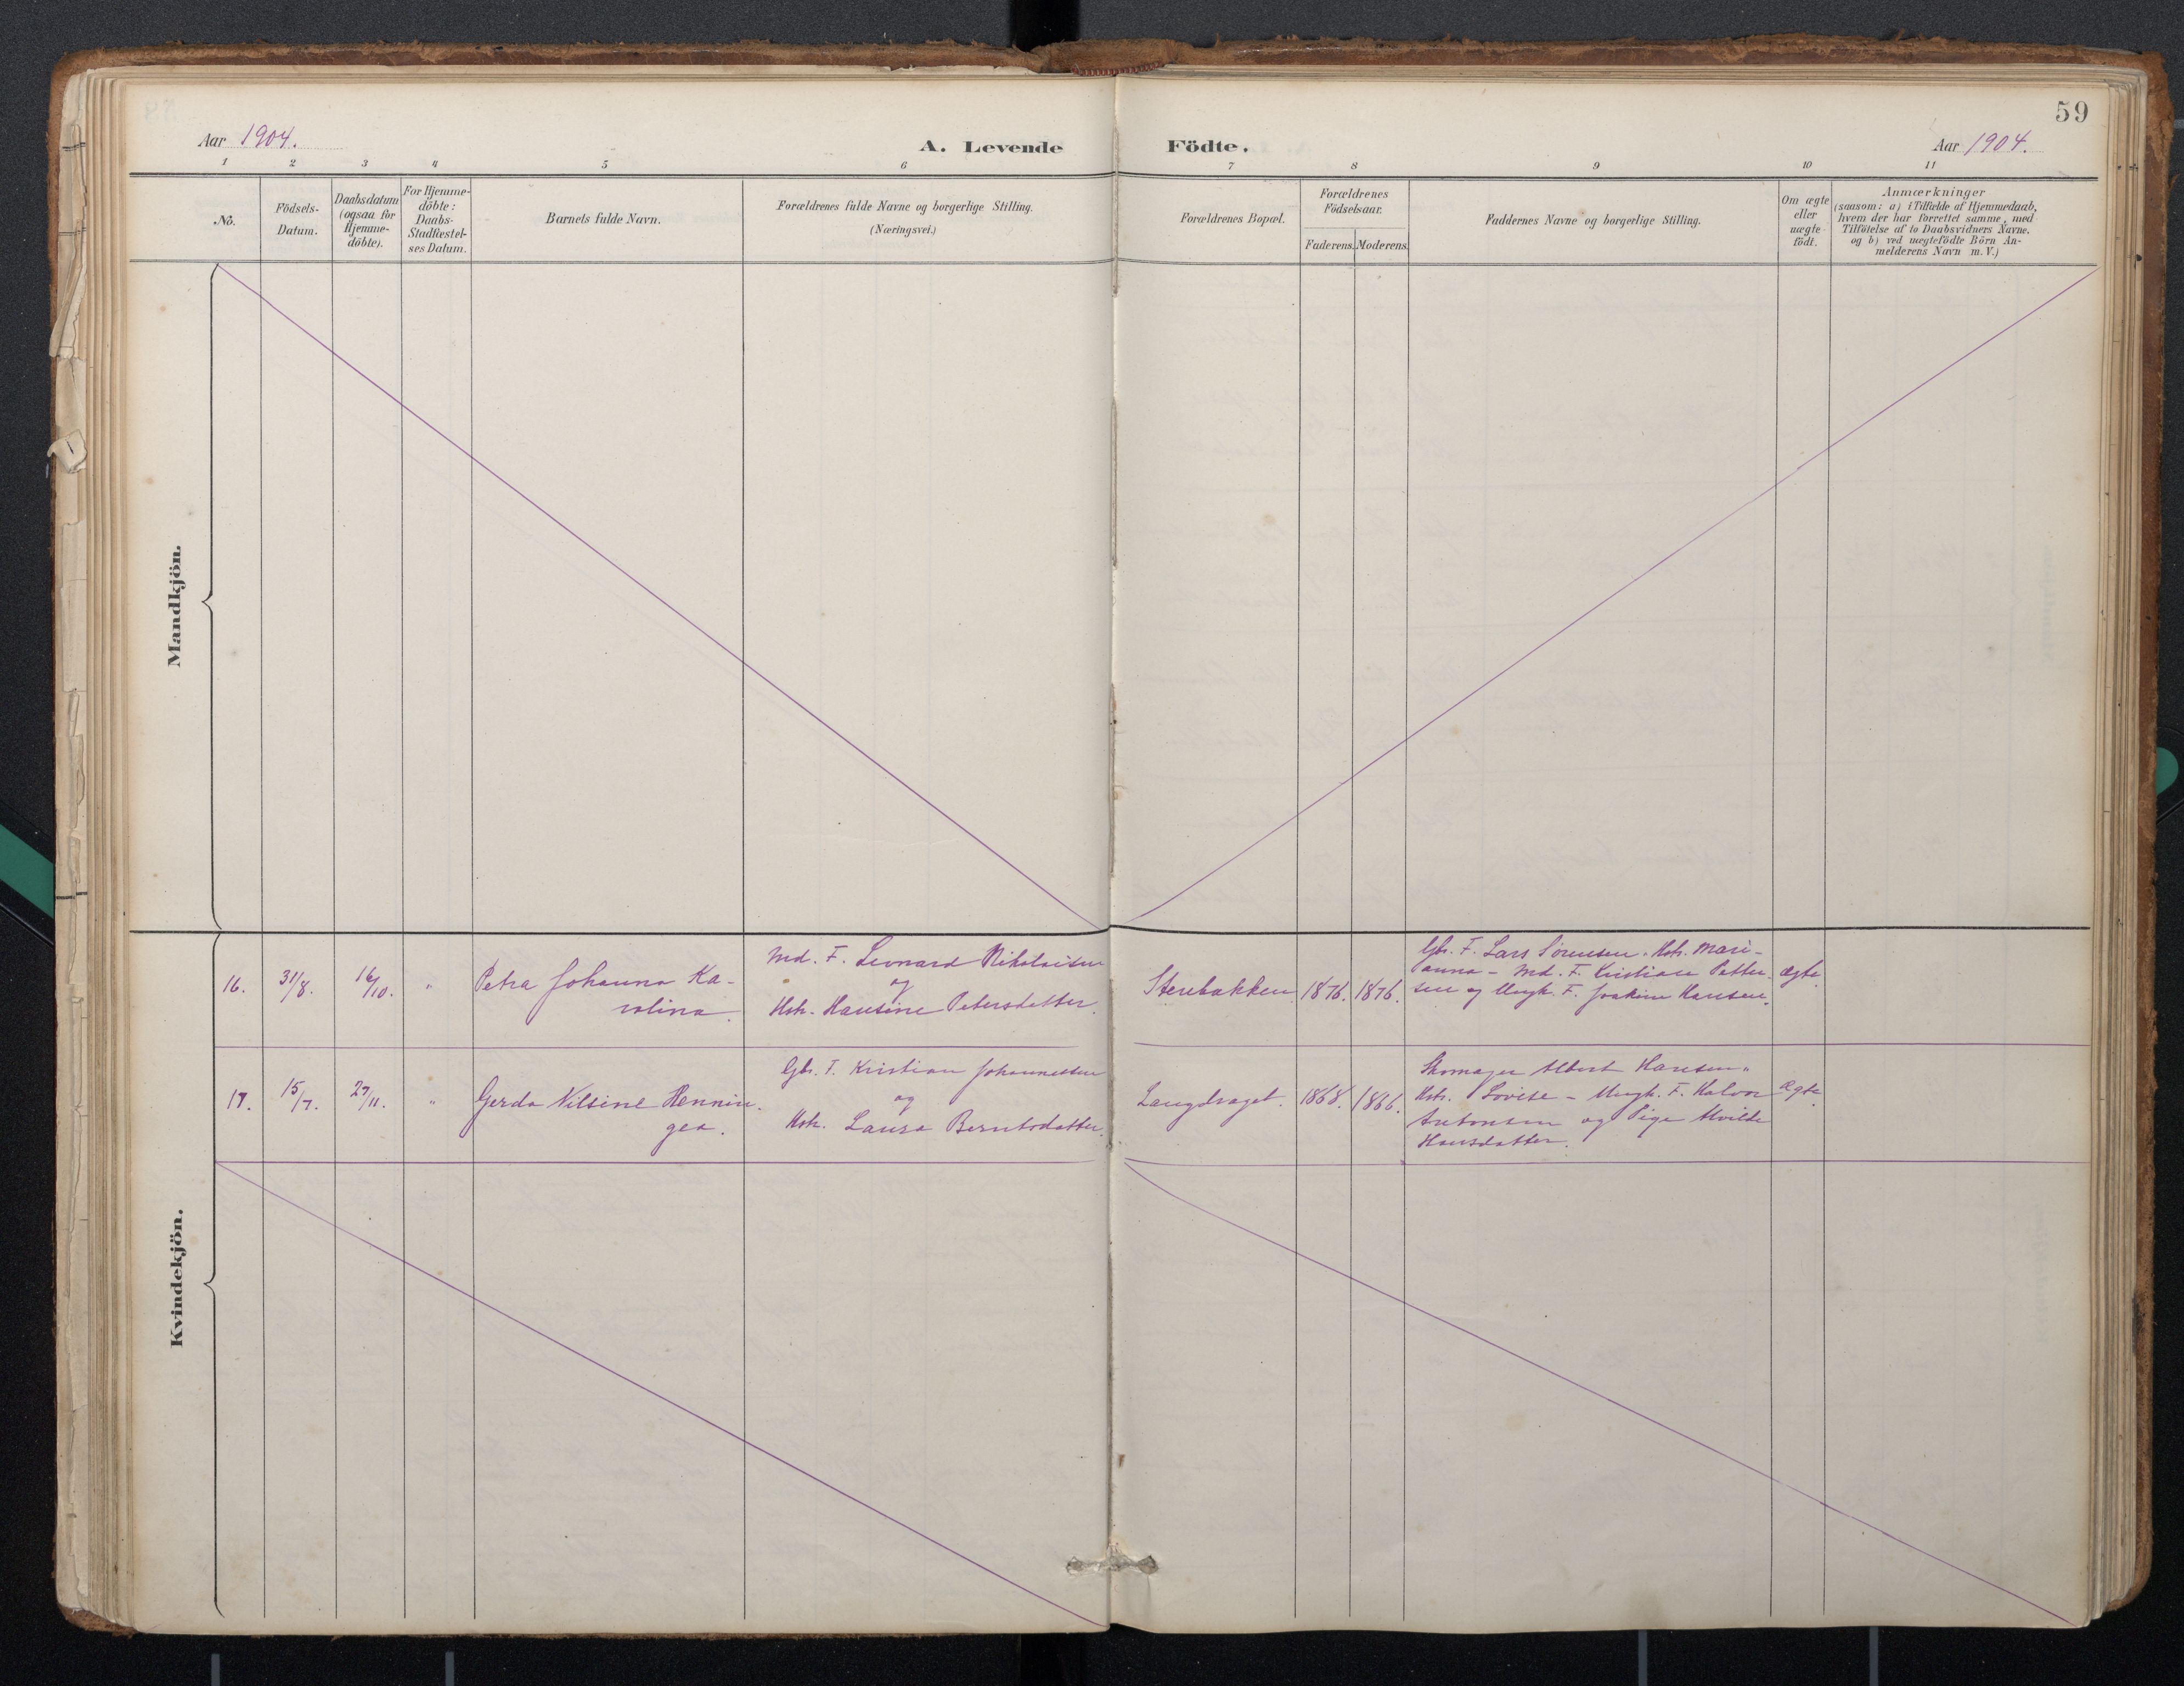 59
Aar 1904.
A. Levende Födte.
Aar 1904.
1 2 3 4 5 6 7 8 9 10 11
No.
Födsels-
Datum.
Daabsdatum
(ogsaa for
Hjemme-
döbte).
For Hjemme-
döbte:
Daabs-
Stadfæstel-
ses Datum.
Barnets fulde Navn.
Forældrenes fulde Navne og borgerlige Stilling.
(Næringsvei.)
Forældrenes Bopæl.
Forældrenes
Födselsaar.
Faderens. Moderens.
Faddernes Navne og borgerlige Stilling.
Om ægte
eller
uægte
födt.
Anmærkninger
(saasom: a) i Tilfælde af Hjemmedaab,
hvem der har forrettet samme, med
Tilföielse af to Daabsvidners Navne.
og b) ved uægtefödte Börn An-
melderens Navn m. V.)
Mandkjön.
Kvindekjön.
16.
31/8.
16/10.
"
Petra Johanna Ka-
rolina.
Md. F. Leonard Nikolaisen
og
Hstr. Hansine Petersdatter.
Stenbakken
1876.
1876.
Gbr. F. Lars Sörensen. Hstr. Mari-
anna - Md. F. Kristian Petter-
sen og Ungk. F. Joakim Hansen.
Ægte
17.
15/7.
27/11.
"
Gerda Nilsine Hennin-
gea.
Gbr. F. Kristian Johannessen
og
Hstr. Laura Berntsdatter.
Langdraget.
1868.
1866.
Skomager Albert Hansen "
Hstr. Lovise - Ungk. F. Halvor
Antonsen og Pige Alvilde
Hansdatter.
Ægte